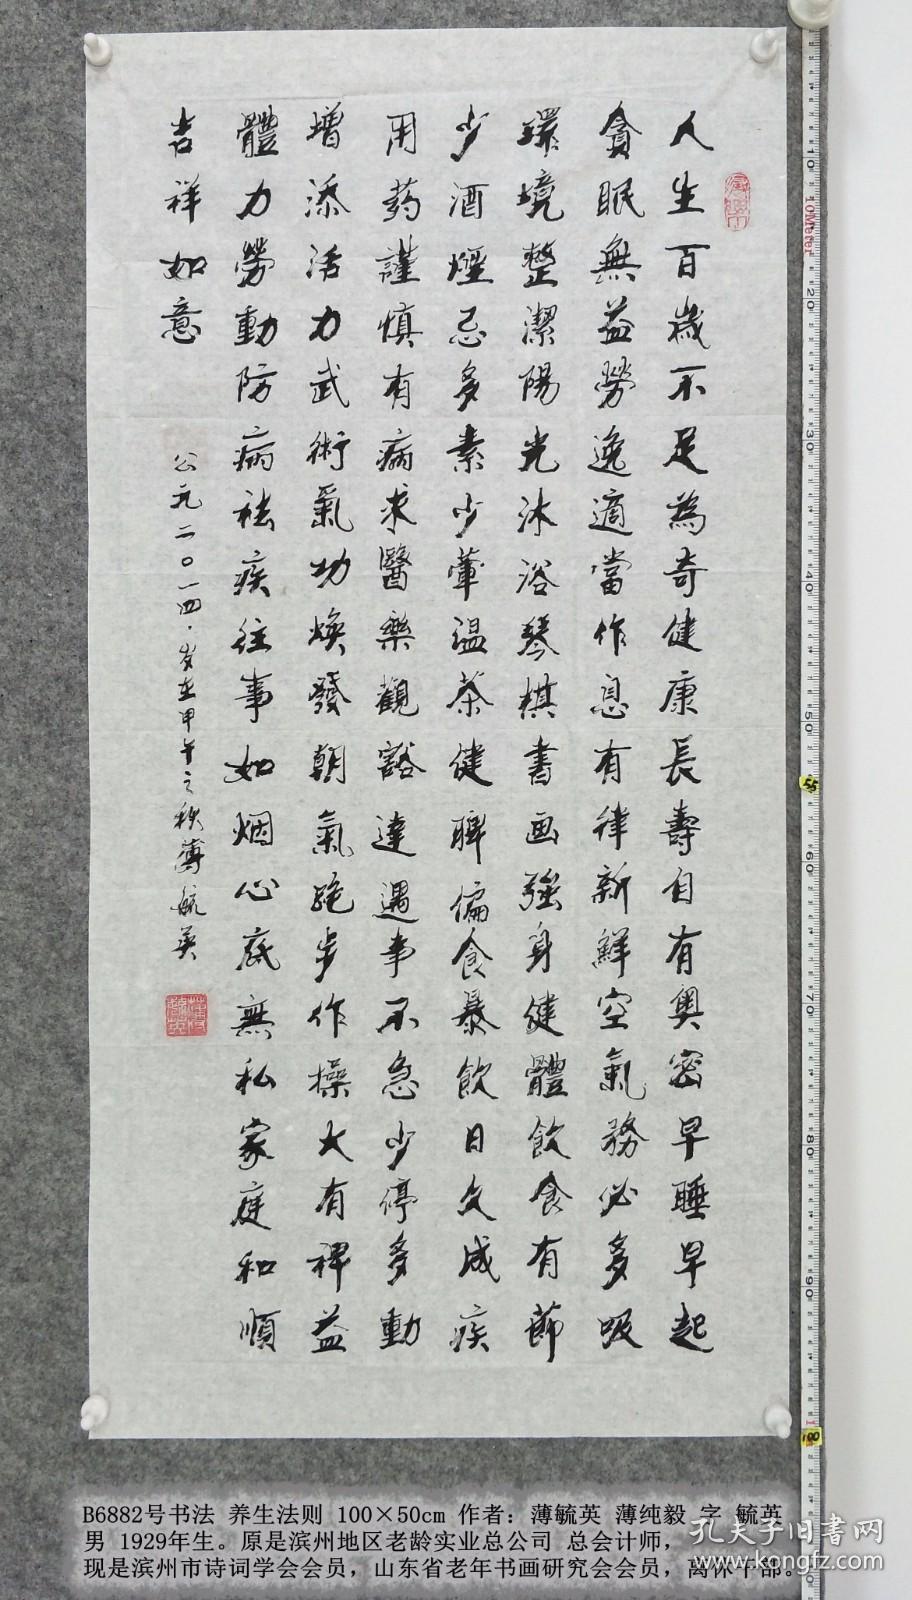 人生百歲不足為奇健康長壽自有奧密早睡早起
貪眠無益勞逸適當作息有律新鮮空氣務必多吸
環境整潔陽光沐浴琴棋書画強身健體飲食有節
少酒煙忌多素少葷温茶健脾偏食暴飲日久成疾
用药謹慎有病求醫樂觀豁達遇事不急少停多動
增添活力武術氣功焕發朝氣跑步作操大有裨益
體力勞動防病祛疾往事如烟心底無私家庭和順
吉祥如意
公元二〇一四.岁在甲午之秋薄毓英
10Meter
10
20
30
40
50
55
60
70
80
90
100
B6882号书法 养生法则 100×50cm 作者：薄毓英 薄纯毅 字 毓英
男 1929年生。原是滨州地区老龄实业总公司 总会计师，
现是滨州市诗词学会会员，山东省老年书画研究会会员，离休干部。
孔夫子旧书网
www.kongfz.com